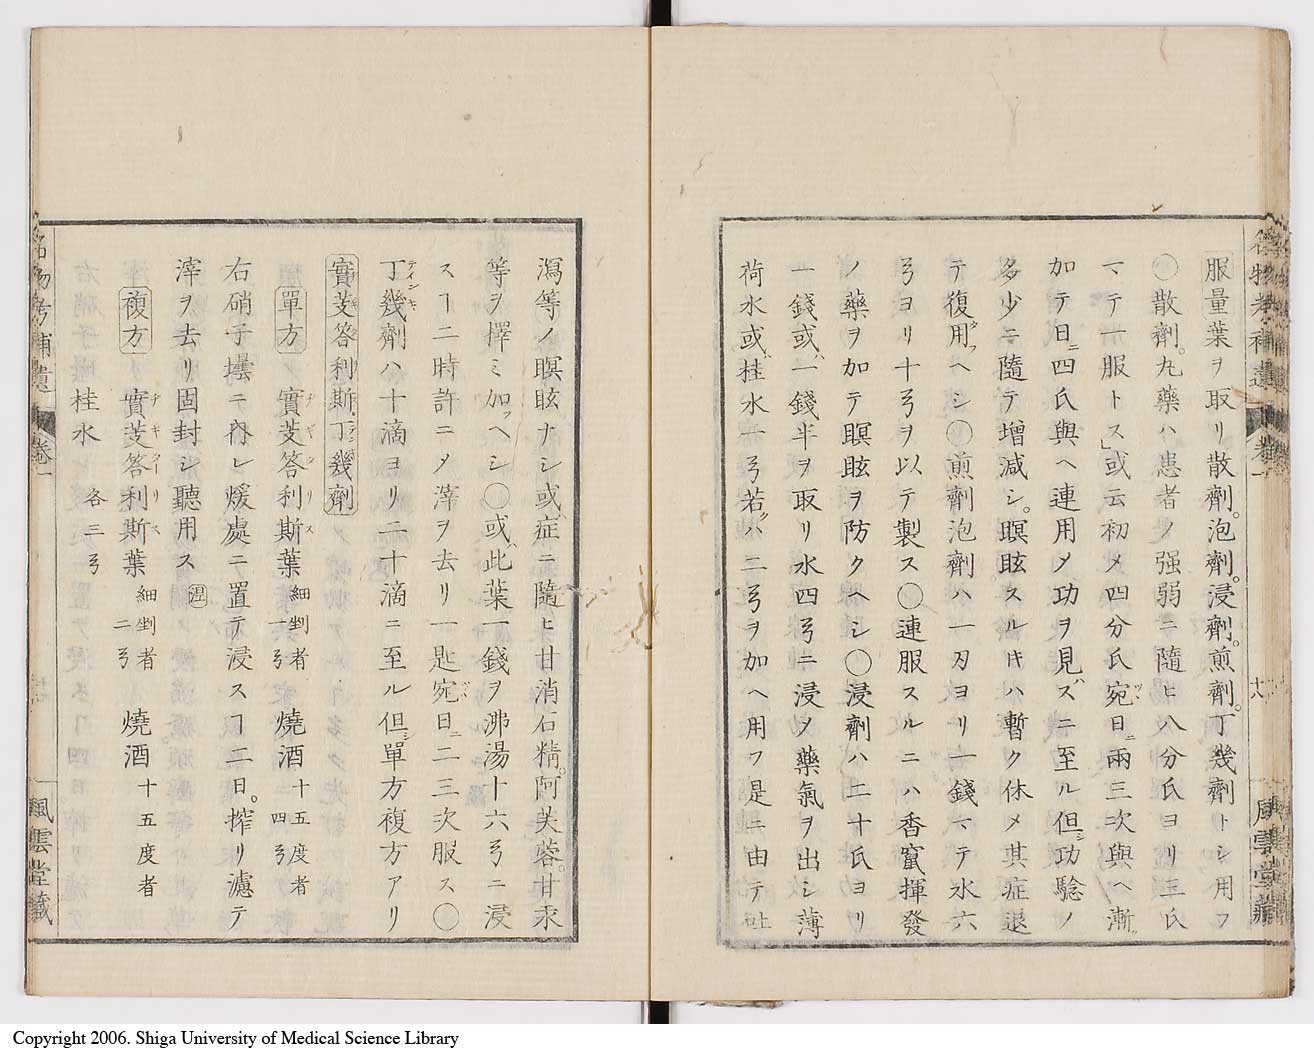 服量葉ヲ取リ散劑。泡劑。浸劑。煎劑。丁幾劑トシ用フ
〇散劑。丸藥ハ患者ノ強弱ニ隨ヒ八分氏ヨリ三氏
マテ一服トス」或云初メ四分氏宛日ニ兩三次與ヘ漸
加テ日ニ四氏與ヘ連用メ功ヲ見ズニ至ル但シ功驗ノ
多少ニ隨テ増減シ。瞑眩スルキハ暫ク休メ其症退
テ復用フヘシ〇煎劑泡劑ハ一刄ヨリ一錢マテ水六
弓ヨリ十弓ヲ以テ製ス〇連服スルニハ香竄揮發
ノ藥ヲ加テ瞑眩ヲ防クヘシ〇浸劑ハ二十氏ヨリ
一錢或ハ一錢半ヲ取リ水四弓ニ浸メ藥氣ヲ出シ薄
荷水或ハ桂水一弓若クハ二弓ヲ加ヘ用フ是ニ由テ吐
瀉等ノ瞑眩ナシ或ハ症ニ隨ヒ甘消石精。阿芙蓉。甘汞
等ヲ擇ミ加フヘシ〇或ハ此葉一錢ヲ沸湯十六弓ニ浸
スヿ二時許ニメ滓ヲ去リ一匙宛日ニ二三次服ス〇
丁幾劑ハ十滴ヨリ二十滴ニ至ル但シ單方複方アリ
實芰答利斯丁幾劑
單方 實芰答利斯葉 細剉者一弓 燒酒 十五度者四弓
右硝子壜ニ內レ煖處ニ置テ浸スヿ二日。搾リ濾テ
滓ヲ去リ固封シ聽用ス
複方 實芰答利斯葉 細剉者二弓 燒酒 十五度者
桂水 各三弓
名物考補遺 卷一
風雲堂藏